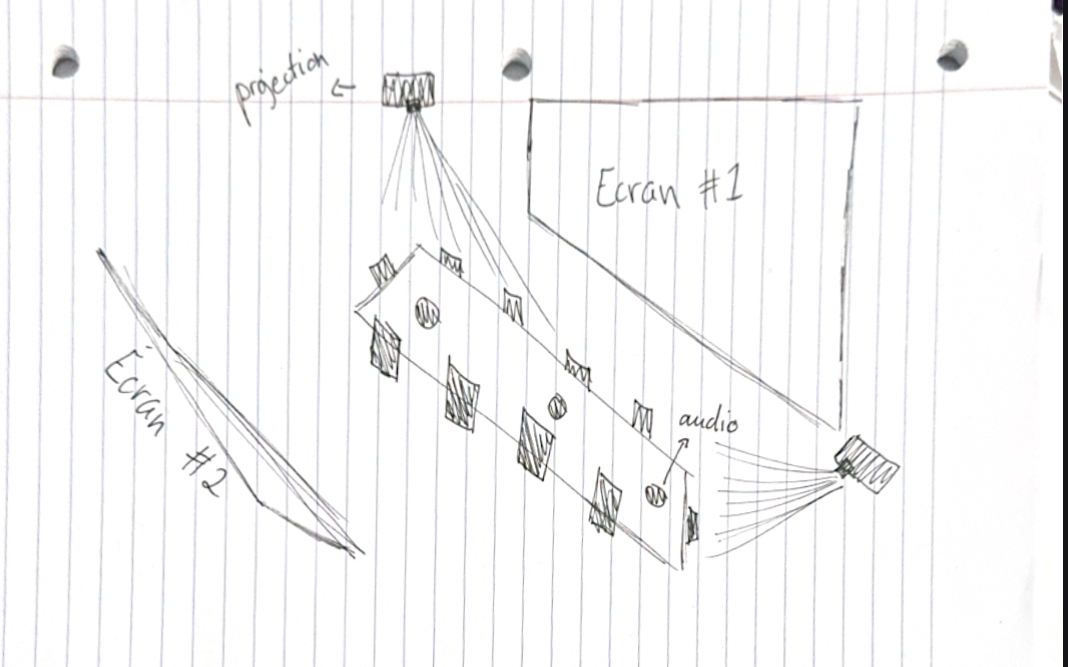 projection
Ecran #1
Écran #2
audio